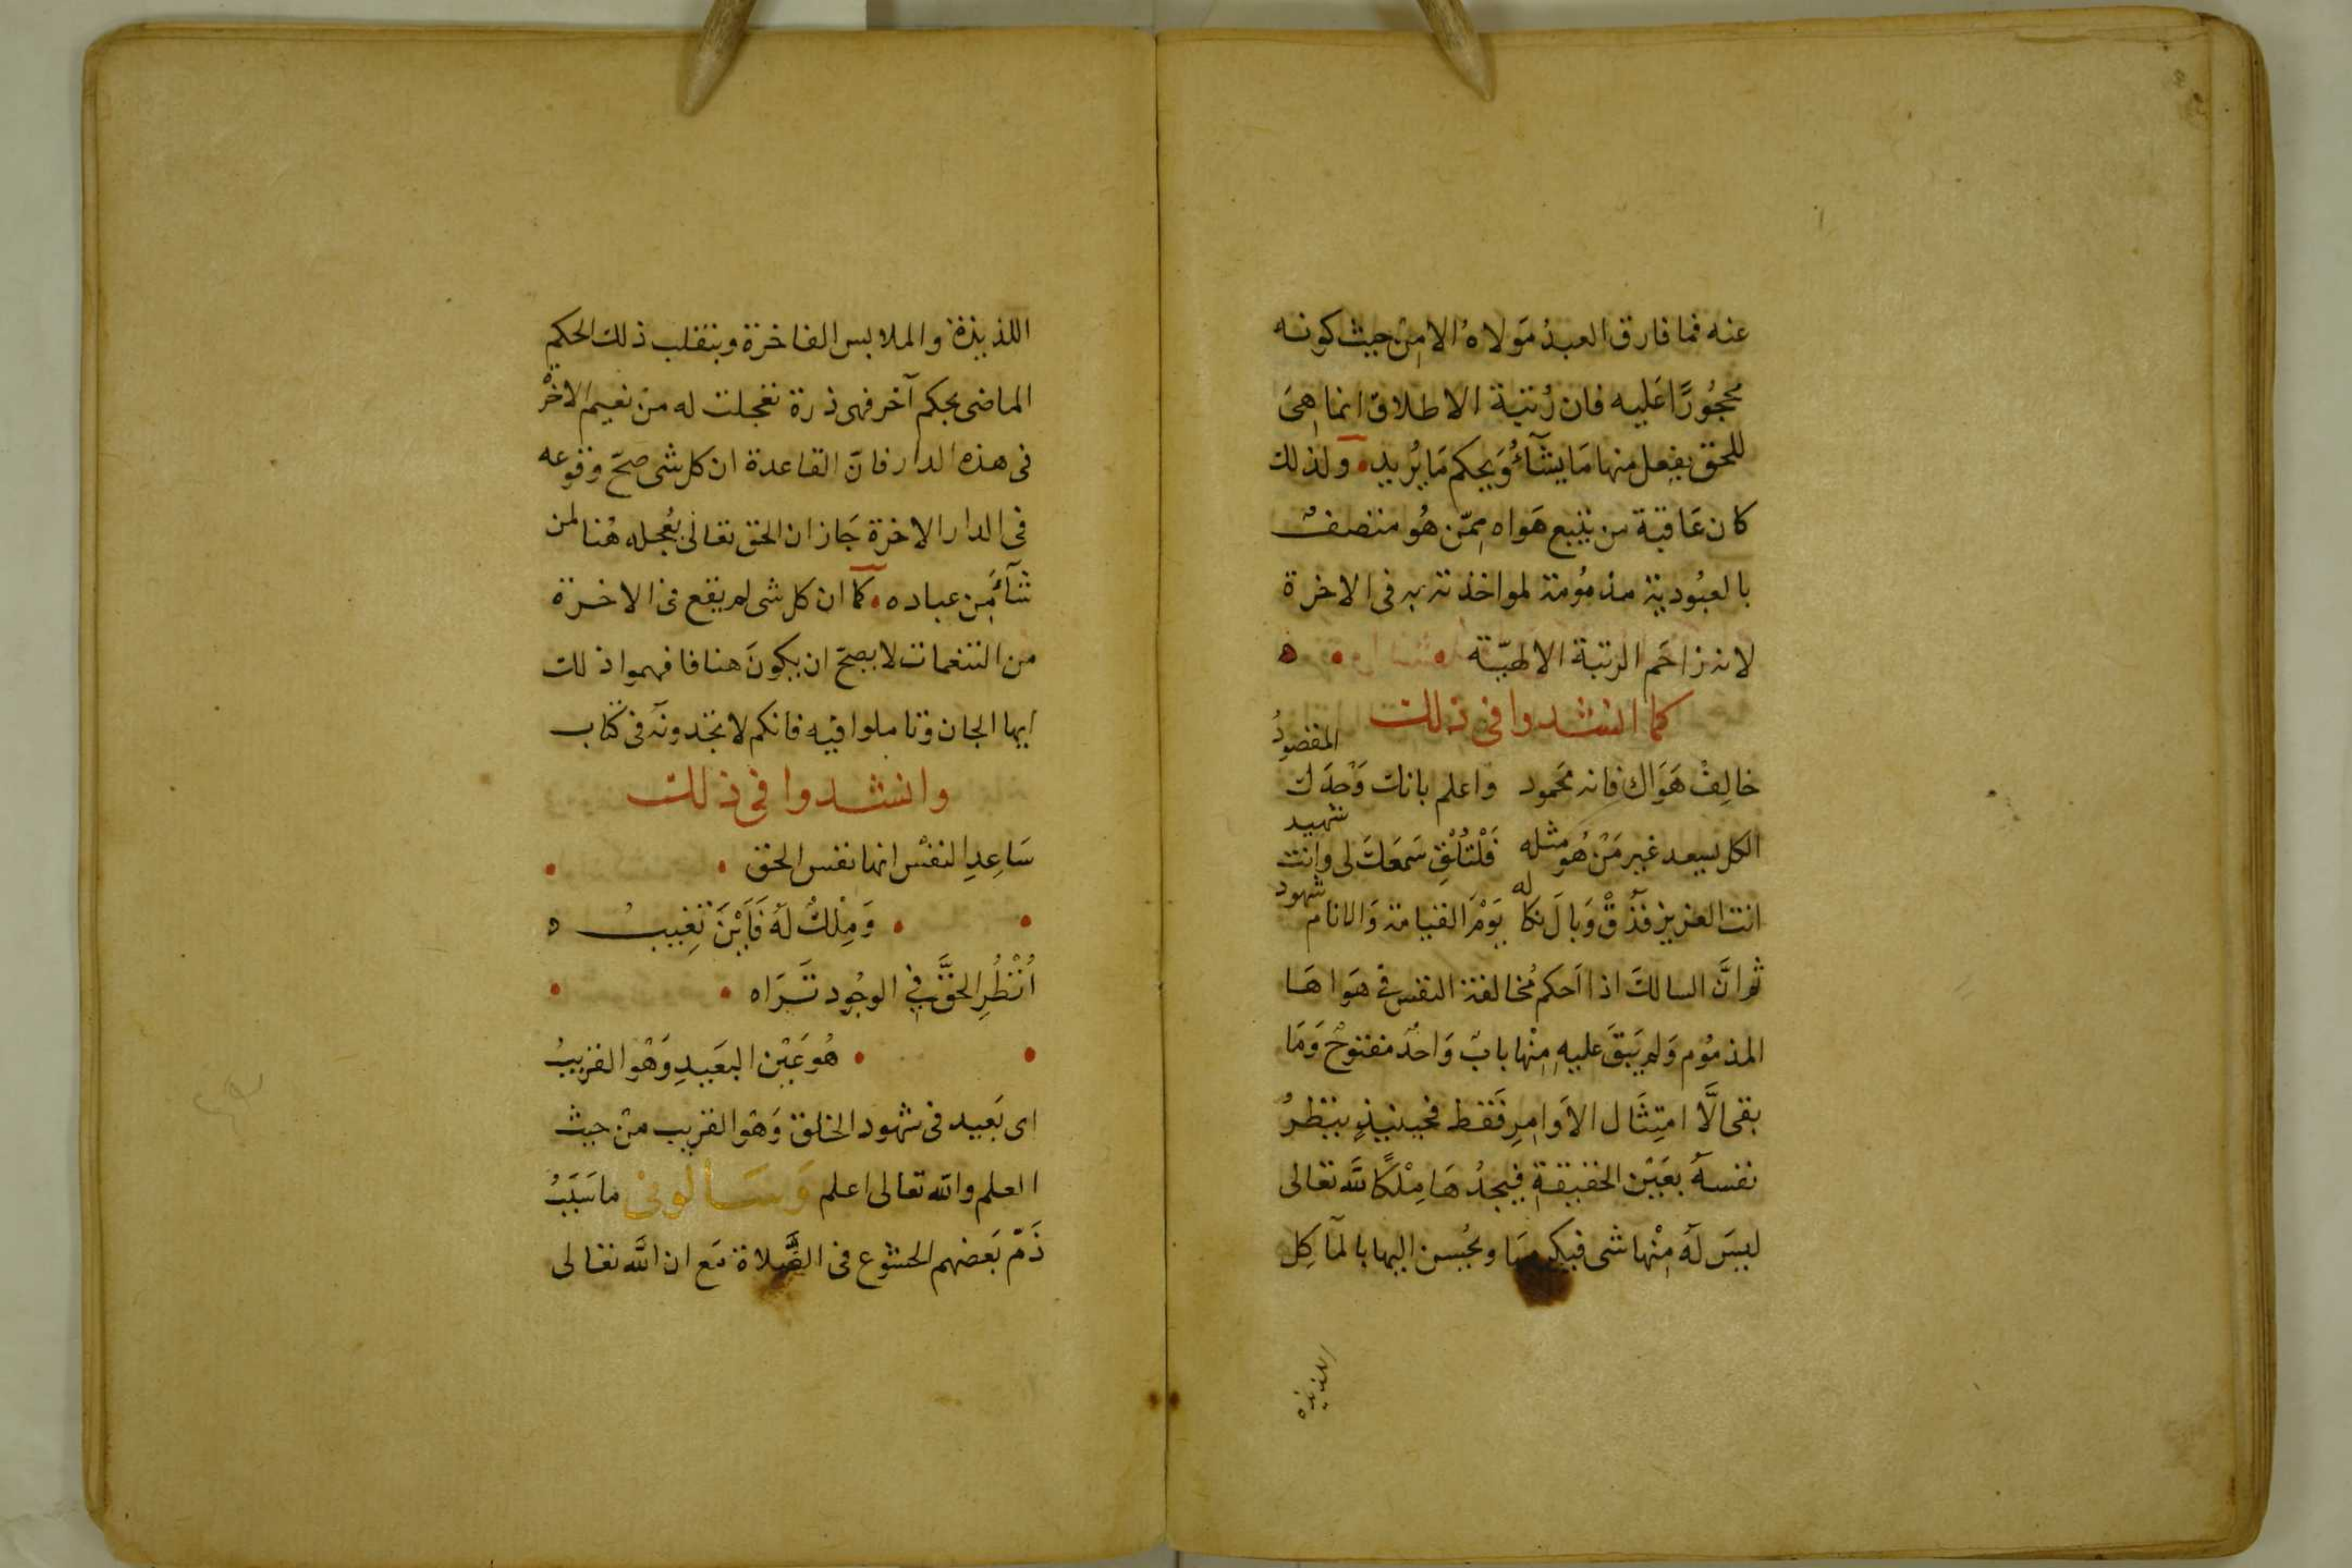 عنه فما فارق العبدُ مَولاهُ الا مِن حيث كونه
محجُورًا عَليه فان رُتبة الاطلاق انما هِىَ
للحق يفعل منها مَا يشآءُ وَيحكم مَا يُريد ولذلك
كان عَاقبة من يتبع هَواه مِمّن هُو متصف
بالعبُودية مذمُومة لمواخذته به فى الاخرة
لانه زاحَم الرتبة الالهيّة ه
كما انشدوا فى ذلك
خالِفْ هَوَاك فانه محَمود واعلم بانك وَحدَك المقصودُ
الكل يسعد غير مَنْ هُو مثله فَلْتُلْقِ سَمعَكَ لى وانت شهيد
انت العزيز فذُقْ وَبالَ نكاله يَوْمَ القيامة وَالانام شهود
ثم انَّ السالك اذا اَحكم مُخالفة النفس فى هَواهَا
المذمُوم وَلم يَبقَ عليه مِنْها بابٌ وَاحدٌ مفتوحٌ وَمَا
بقى الَّا امتِثَال الاَوامِرِ فَقط فحينئذٍ ينظرُ
نفسهُ بعَيْن الحقيقةِ فيجدُهَا مِلْكًا للَّه تعالى
ليسَ لَهُ مِنْها شى فيكرمها ويحُسن اليها بالمآكِل
اللذيذه
اللذيذة والملابس الفاخرة وينقلب ذلك الحكم
الماضى بحكم آخر فهى ذرة تعجلت له من نعيم الاخرة
فى هذه الدار فانّ القاعدة ان كل شى صحّ وقوعه
فى الدار الاخرة جَاز ان الحق تعالى يُعجله هُنا لمن
شآءَ مِن عباده كما ان كل شى لم يقع فى الاخرة
من التنعمات لا يصحّ ان يكونَ هنا فافهموا ذلك
ايها الجان وتاملوا فيه فانكم لا تجدونه فى كتاب
وانشدوا فى ذلك
سَاعِدِ النفسَ انها نفس الحق
وَمِلْكٌ لَهُ فَاَيْنَ تَغِيبُ ه
اُنْظُرِ الحَقَّ فِي الوجُود تَرَاه
هُوَ عَيْن البَعيدِ وَهْوَ القريبُ
اى بَعيد فى شهود الخلق وَهْو القريب من حيث
العلم والله تعالى اعلم وَسَالونى ما سَبَبُ
ذَمّ بَعضهم الخشوع فى الصَّلاة مَع ان الله تعالى